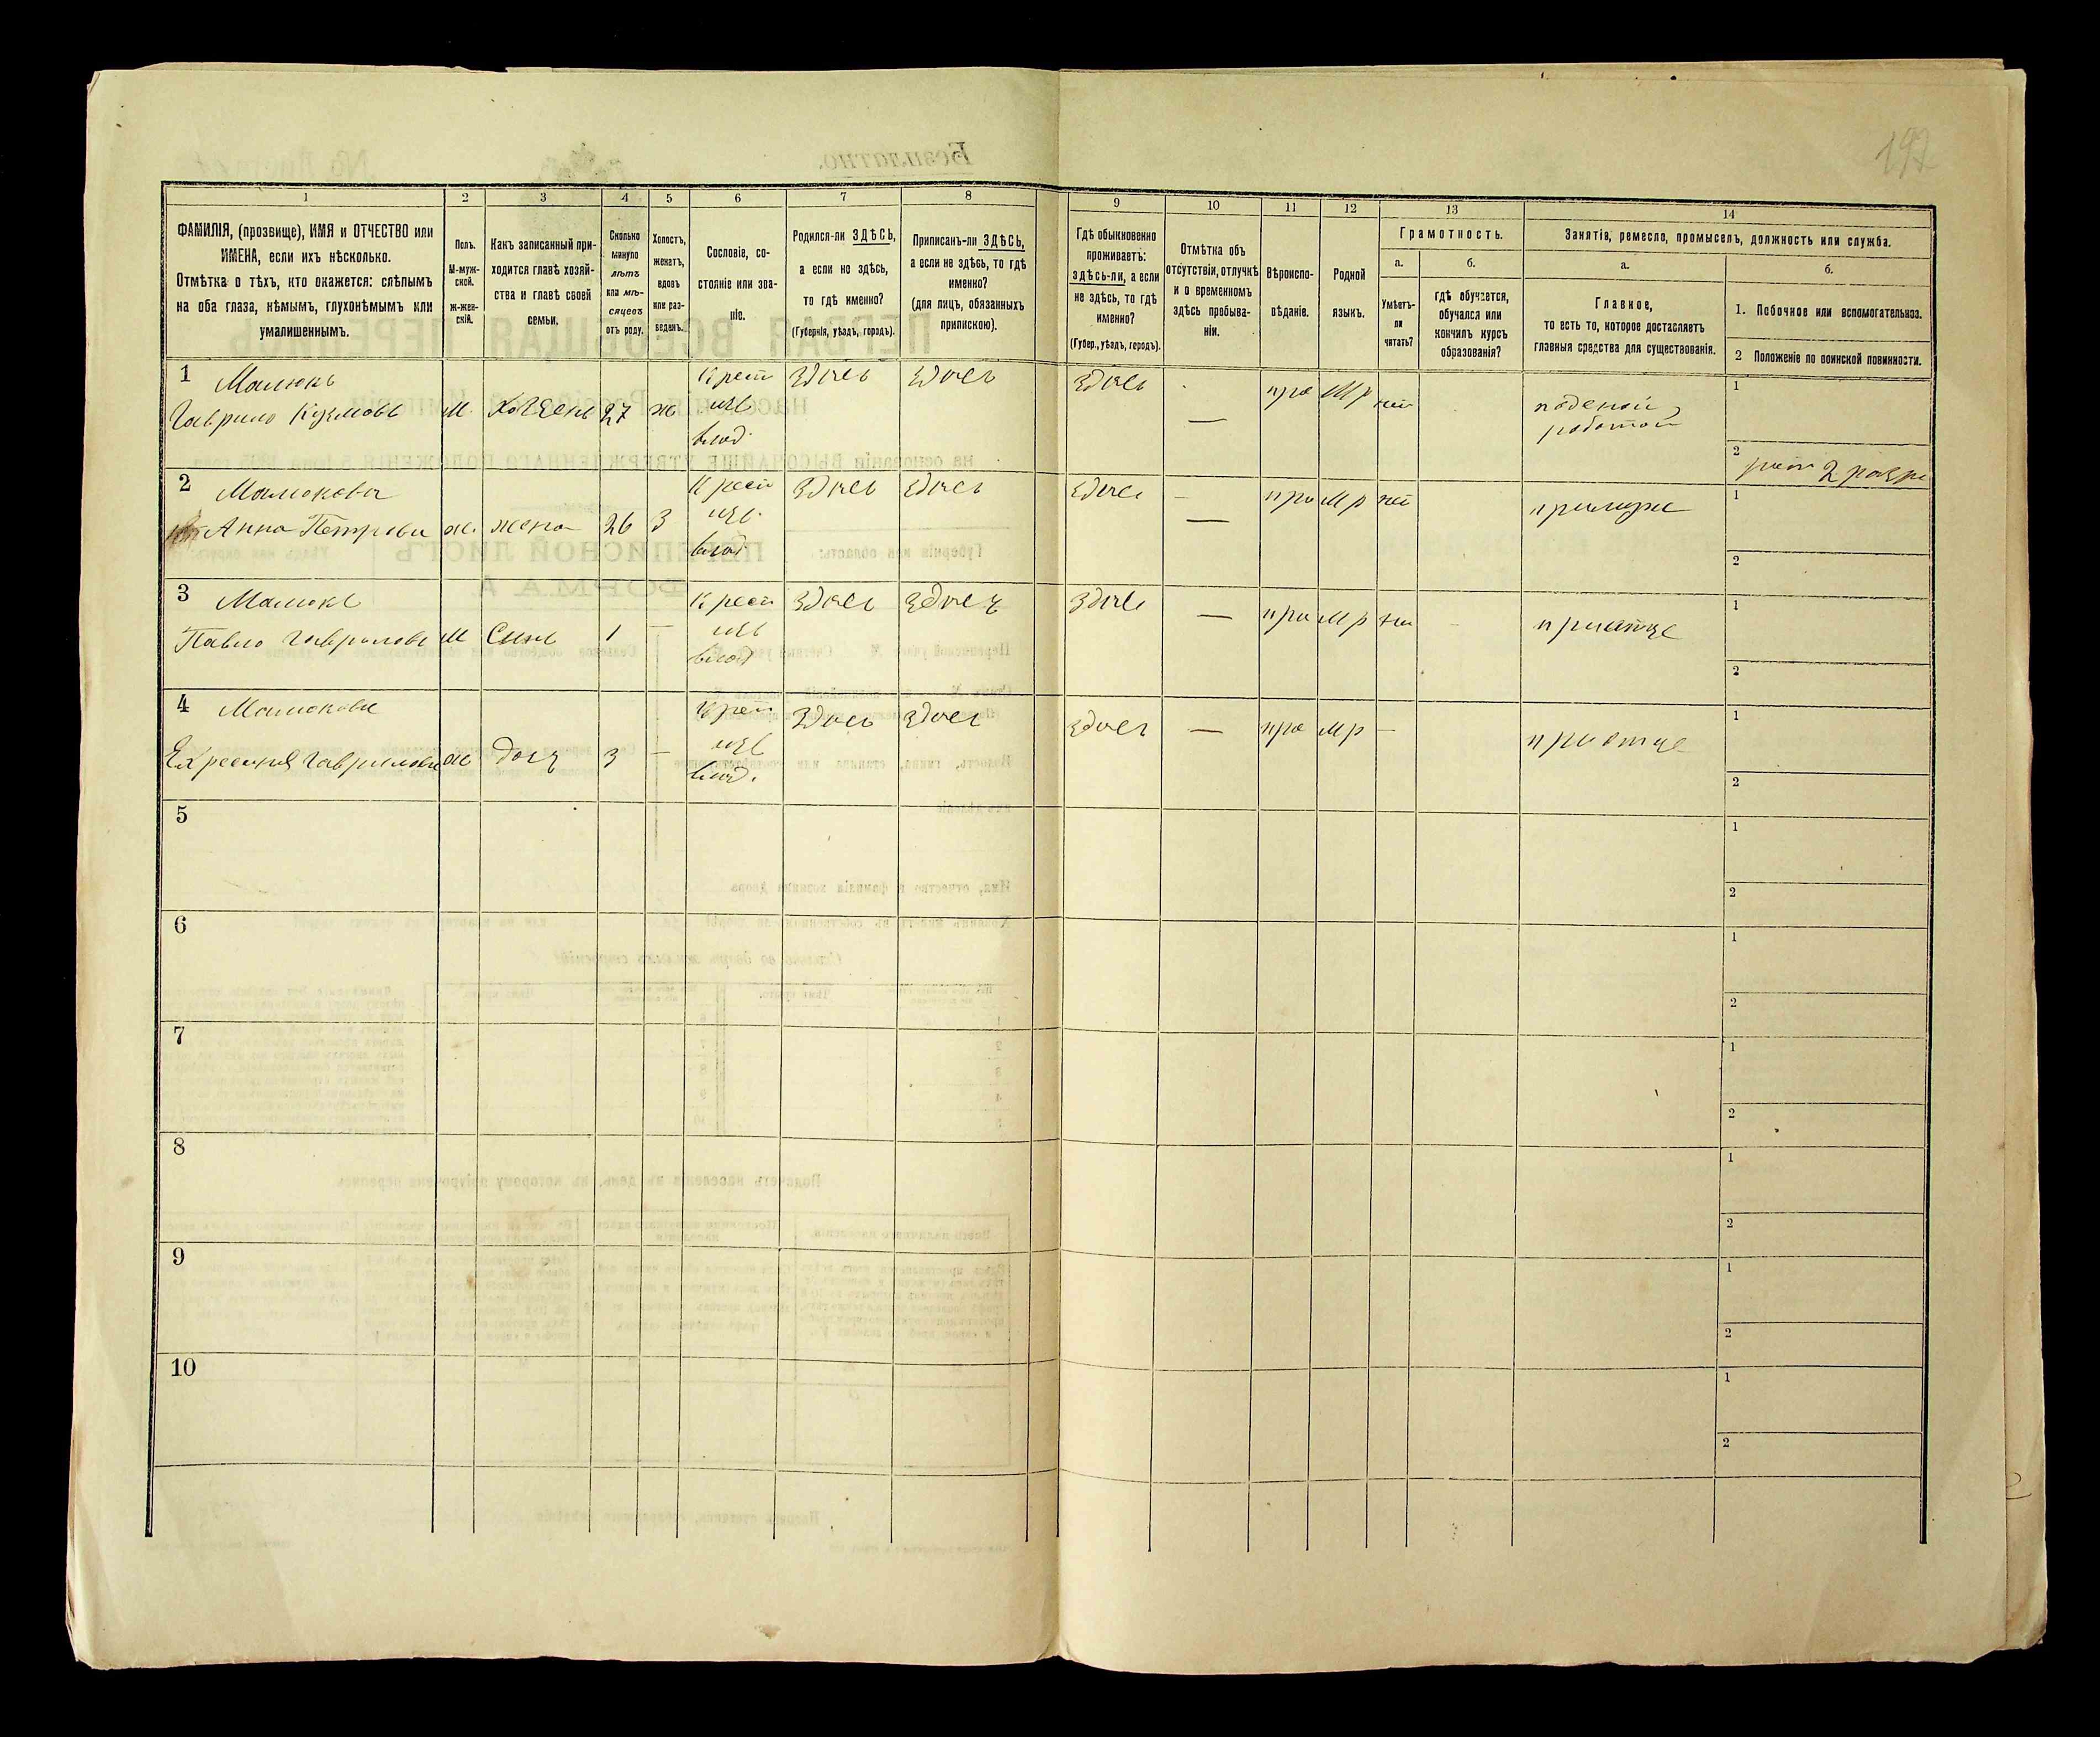 197
1 2 3 4 5 6 7 8 9 10 11 12 13 14
ФАМИЛІЯ, (прозвище), ИМЯ и ОТЧЕСТВО или
ИМЕНА, если ихъ нѣсколько.
Отмѣтка о тѣхъ, кто окажется: слѣпымъ
на оба глаза, нѣмымъ, глухонѣмымъ или
умалишеннымъ.
Полъ.
М-муж-
ской.
ж-жен-
скій.
Какъ записанный при-
ходится главѣ хозяй-
ства и главѣ своей
семьи.
Сколько
минуло
лѣтъ
или мѣ-
сяцевъ
отъ роду.
Холостъ,
женатъ,
вдовъ
или раз-
веденъ.
Сословіе, со-
стояніе или зва-
ніе.
Родился-ли ЗДѢСЬ,
а если не здѣсь,
то гдѣ именно?
(Губернія, уѣздъ, городъ).
Приписанъ-ли ЗДѢСЬ,
а если не здѣсь, то гдѣ
именно?
(для лицъ, обязанныхъ
припискою).
Гдѣ обыкновенно
проживаетъ:
здѣсь-ли, а если
не здѣсь, то гдѣ
именно?
(Губер., уѣздъ, городъ).
Отмѣтка объ
отсутствіи, отлучкѣ
и о временномъ
здѣсь пребыва-
ніи.
Вѣроиспо-
вѣданіе.
Родной
языкъ.
Грамотность.
а.
Умѣетъ-
ли
читать?
б.
гдѣ обучается,
обучался или
кончилъ курсъ
образованія?
Занятія, ремесло, промыселъ, должность или служба.
а.
Главное,
то есть то, которое доставляетъ
главныя средства для существованія.
б.
1. Побочное или вспомогательное.
2 Положеніе по воинской повинности.
1 Малюкъ Крест Здесь Здесь Здесь про Мр 1
Гаврило Кузмовъ М. Хозяень 27 ж изъ
влад. 2
2 Малюкова Крест Здесь Здесь Здесь — про Мр 1
Анна Петрова ж. жена 26 З изъ
влад 2
3 Малюкъ Крест Здесь Здесь Здесь — про Мр приотце 1
Павло Гаврилова М Синъ 1 — изъ
влад 2
4 Малюкова Крест Здесь Здесь Здесь — про Мр — приотце 1
Гаврилова ж дочь 3 — изъ
влад. 2
5 1
2
6 1
2
7 1
2
8 1
2
9 1
2
10 1
2